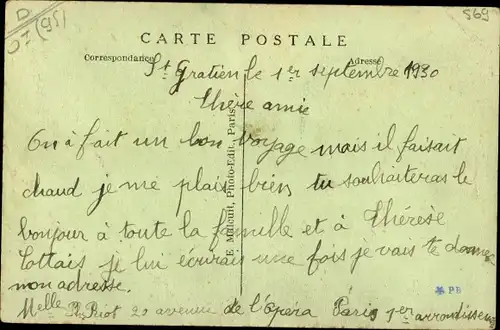 D
07 (95)
569
CARTE POSTALE
Correspondance
Adresse
St Gratien le 1er septembre 1930
Chère amie
On à fait un bon voyage mais il faisait
chaud je me plais bien tu souhaiteras le
bonjour à toute la famille et à Thérèse
Lottais je lui écrirais une fois je vais te donner
mon adresse.
Melle 20 avenue de l'Opéra Paris 1er arrondissem
E. Milleuit, Photo-Edit., Paris
PB